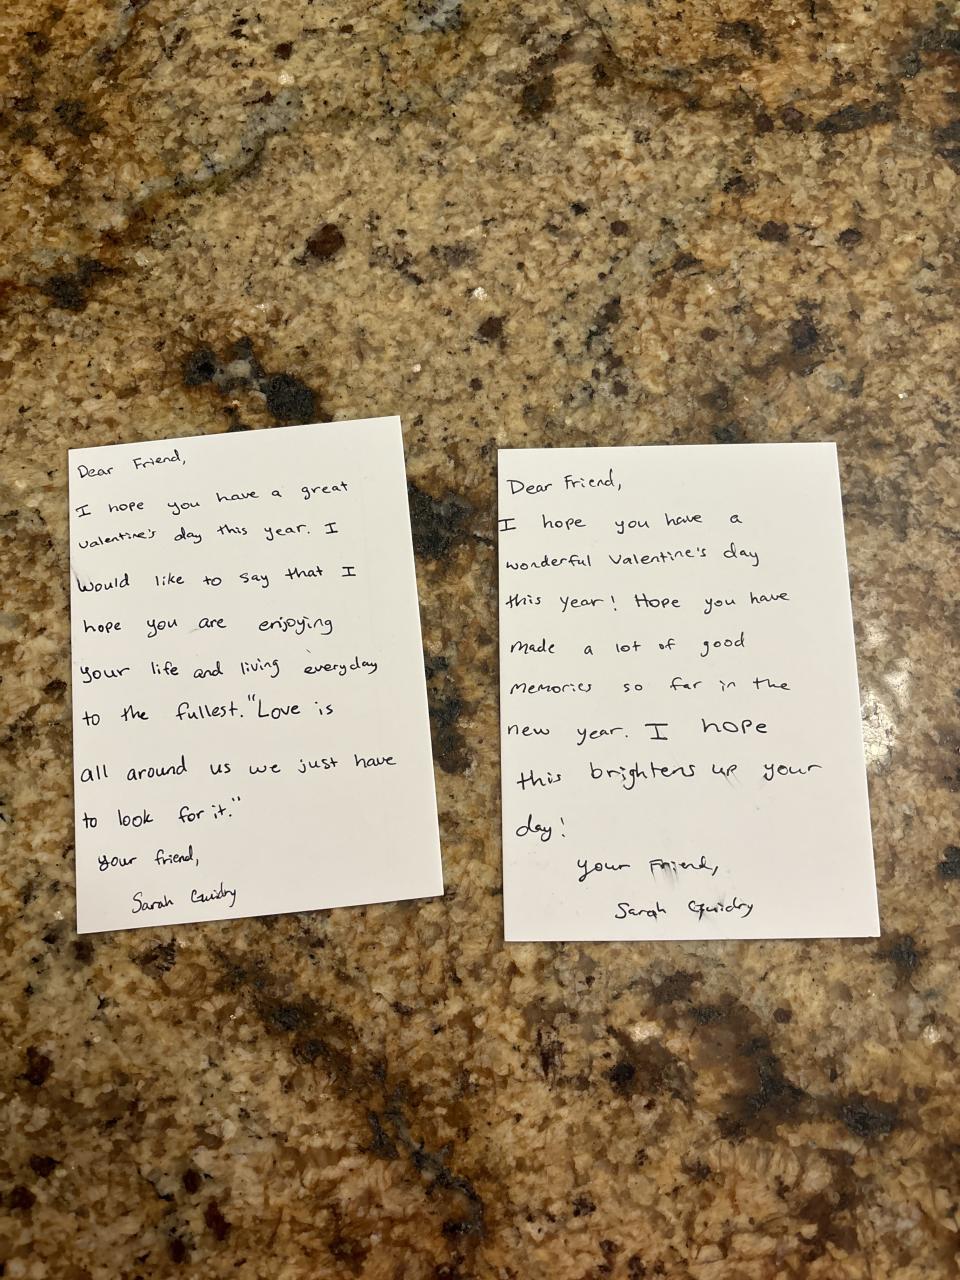 Dear Friend,
I hope you have a great
valentine's day this year. I
would like to say that I
hope you are enjoying
your life and living everyday
to the fullest. "Love is
all around us we just have
to look for it."
your friend,
Sarah Guidry
Dear Friend,
I hope you have a
wonderful Valentine's day
this year! Hope you have
made a lot of good
memories so far in the
new year. I hope
this brightens up your
day!
your Friend,
Sarah Guidry